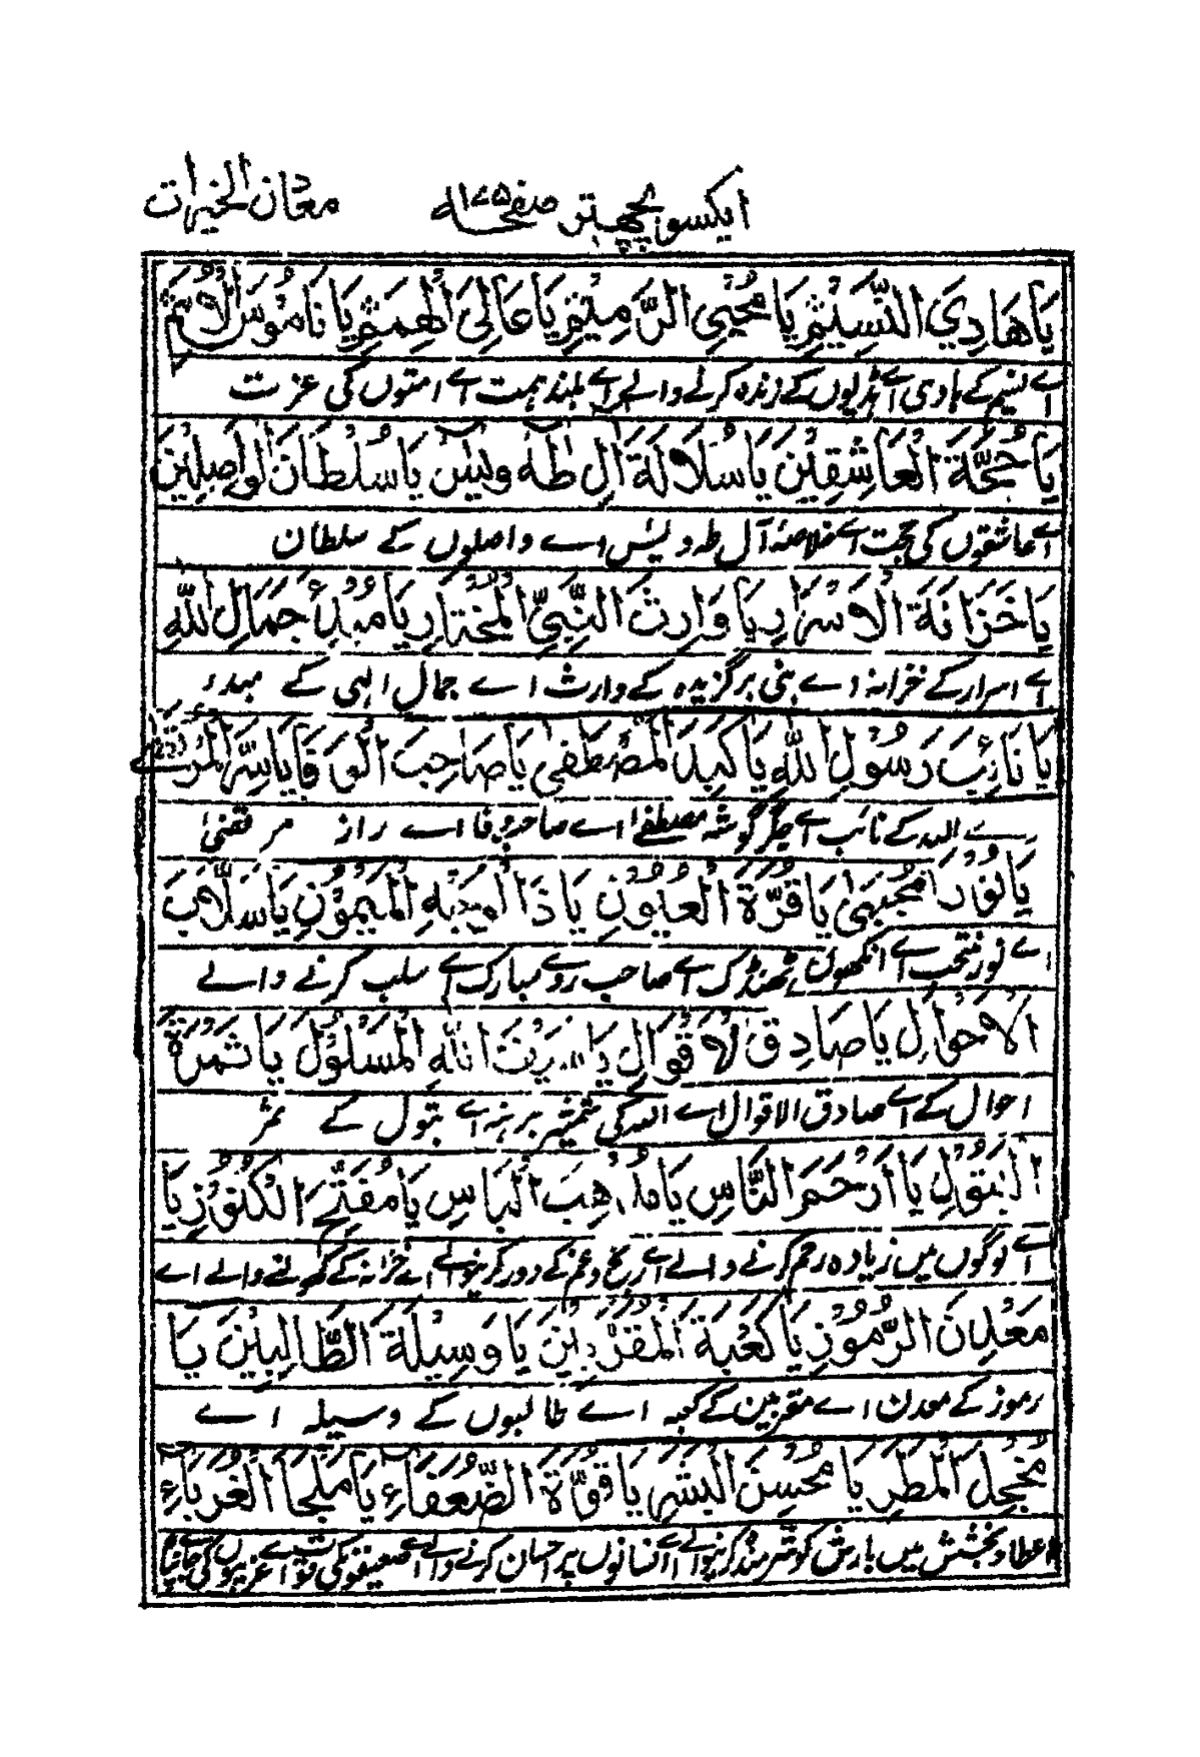 ایکسو پچھتر صفحہ ۱۷۵ معدن الخیرات
يَا هَادِيَ النَّسِيْمِ يَا مُحْيِيَ الرَّمِيْمِ يَا عَالِيَ الْهِمَمِ يَا نَامُوْسَ الْاُمَمِ
اے نسیم کے ہادی اے ہڈیوں کے زندہ کرنے والے اے بلند ہمت اے امتوں کی عزت
يَا حُجَّةَ الْعَاشِقِيْنَ يَا سُلَالَةَ اٰلِ طٰهٰ وَيٰسٓ يَا سُلْطَانَ الْوَاصِلِيْنَ
اے عاشقوں کی حجت اے خلاصۂ آل طہ ویٰس اے واصلوں کے سلطان
يَا خَزَانَةَ الْاَسْرَارِ يَا وَارِثَ النَّبِيِّ الْمُخْتَارِ يَا مُبْدِءَ جَمَالِ اللّٰهِ
اے اسرار کے خزانہ اے نبی برگزیدہ کے وارث اے جمال الہی کے مبدء
يَا نَائِبَ رَسُوْلِ اللّٰهِ يَا كَبِدَ الْمُصْطَفٰى يَا صَاحِبَ الْوَفَا يَا سِرَّ الْمُرْتَضٰى
اللہ کے نائب اے جگر گوشہ مصطفےٰ اے صاحب وفا اے راز مرتضیٰ
يَا نُوْرَ الْمُجْتَبٰى يَا قُرَّةَ الْعُيُوْنِ يَا ذَا الْوَجْهِ الْمَيْمُوْنِ يَا سَلَّابَ
اے نور منتخب اے انکھوں کی ٹھنڈک اے صاحب روے مبارک اے سلب کرنے والے
الْاَحْوَالِ يَا صَادِقَ الْاَقْوَالِ يَا سَيْفَ اللّٰهِ الْمَسْلُوْلَ يَا ثَمَرَةَ
احوال کے اے صادق الاقوال اے اللہ کی شمشیر برہنہ اے بتول کے ثمر
الْبَتُوْلِ يَا اَرْحَمَ النَّاسِ يَا مُذْهِبَ الْبَاسِ يَا مُفَتِّحَ الْكُنُوْزِ يَا
اے لوگوں میں زیادہ رحم کرنے والے اے رنج وغم کے دور کرنیوالے اے خزانہ کے کھولنے والے اے
مَعْدِنَ الرُّمُوْزِ يَا كَعْبَةَ الْمُقَرَّبِيْنَ يَا وَسِيْلَةَ الطَّالِبِيْنَ يَا
رموز کے معدن اے مقربین کے کعبہ اے طالبوں کے وسیلہ اے
مُخْجِلَ الْمَطَرِ يَا مُحْسِنَ الْبَشَرِ يَا قُوَّةَ الضُّعَفَاءِ يَا مَلْجَأَ الْغُرَبَاءِ
عطا و بخشش میں بارش کو شرمندہ کرنیوالے اے انسانوں پر احسان کرنے والے اے ضعیفونکی قوت اے غریبوں کی جائے پناہ